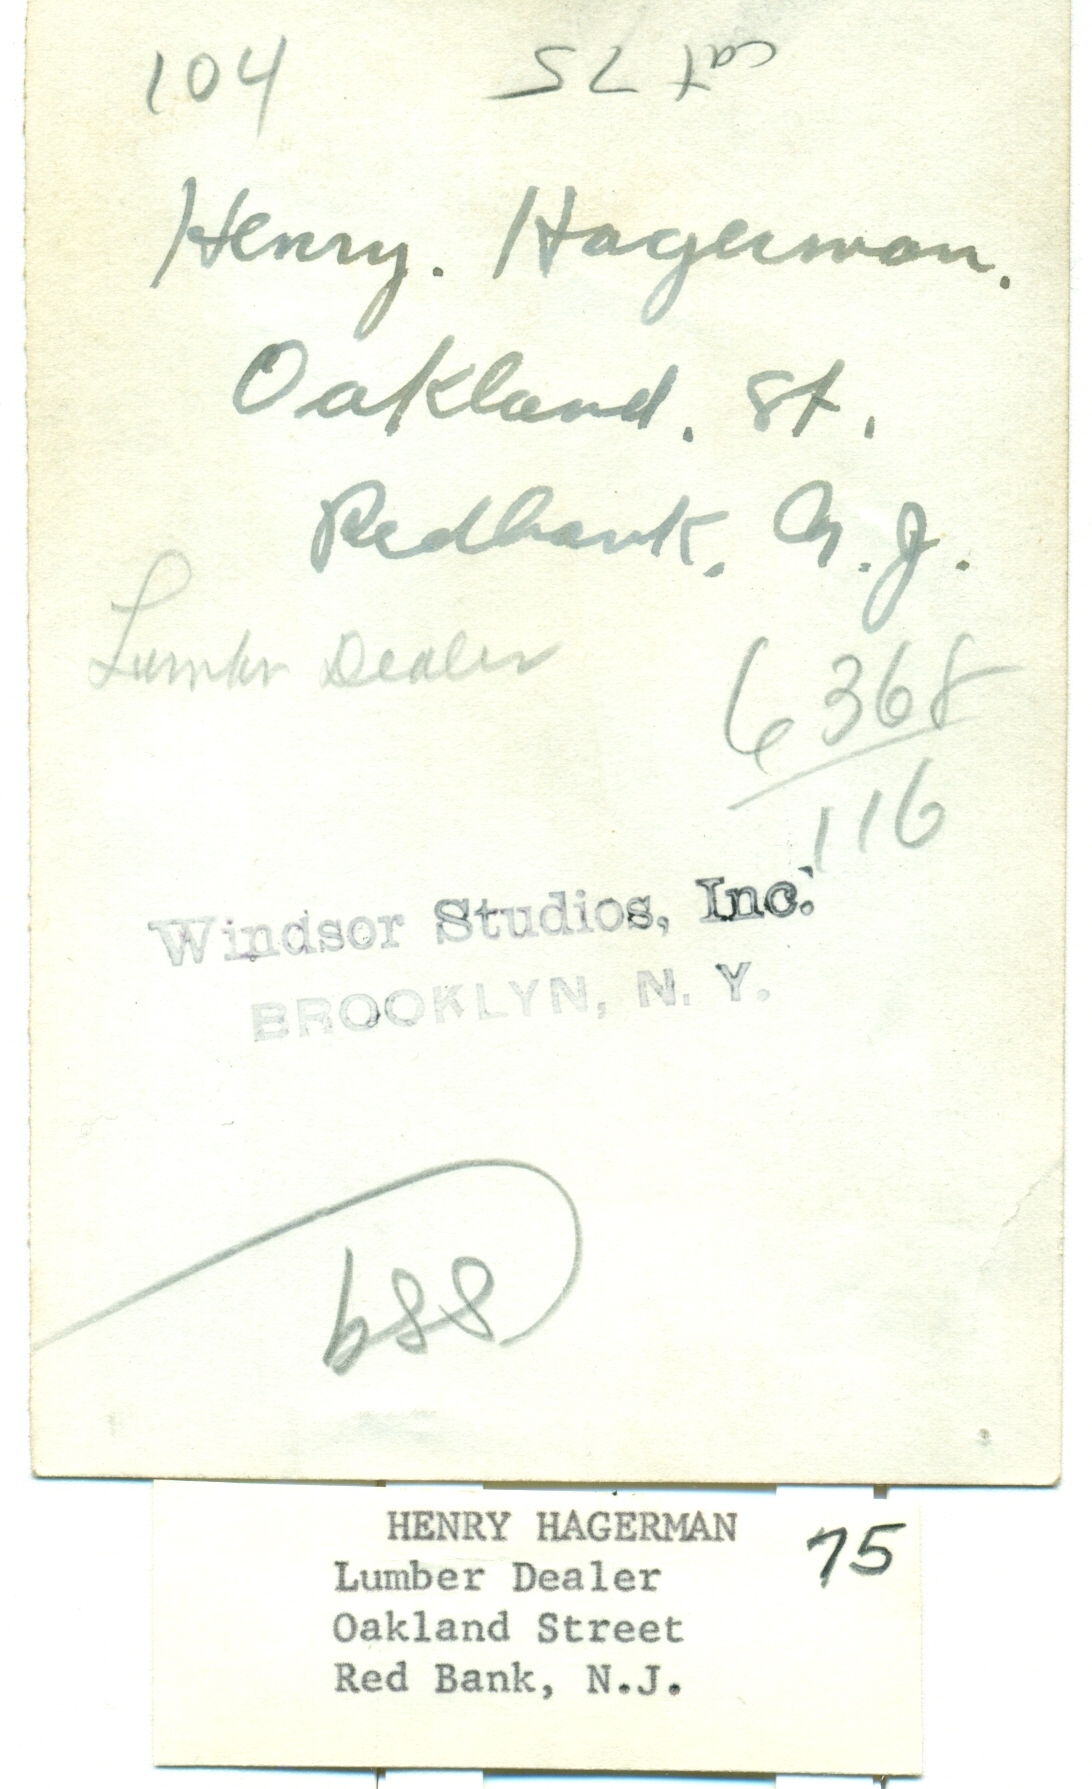 104 cat 75
Henry. Hagerman.
Oakland. St.
Redbank. N.J.
Lumber Dealer
6368
116
Windsor Studios, Inc.
BROOKLYN, N. Y.
HENRY HAGERMAN 75
Lumber Dealer
Oakland Street
Red Bank, N.J.